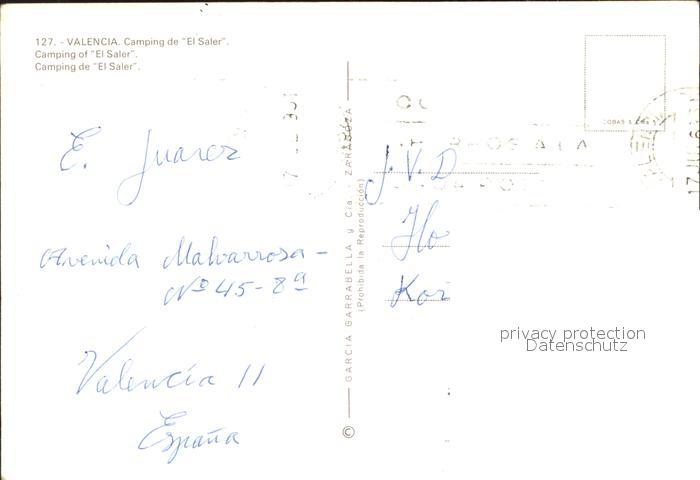 127. - VALENCIA. Camping de "El Saler".
Camping of "El Saler".
Camping de "El Saler".
E. Juarez
Avenida Malvarrosa -
Nº 45 - 8ª
Valencia 11
España
© GARCIA GARRABELLA y Cía. - ZARAGOZA
(Prohibida la Reproducción)
J. V. D
Ho
Kor
privacy protection
Datenschutz